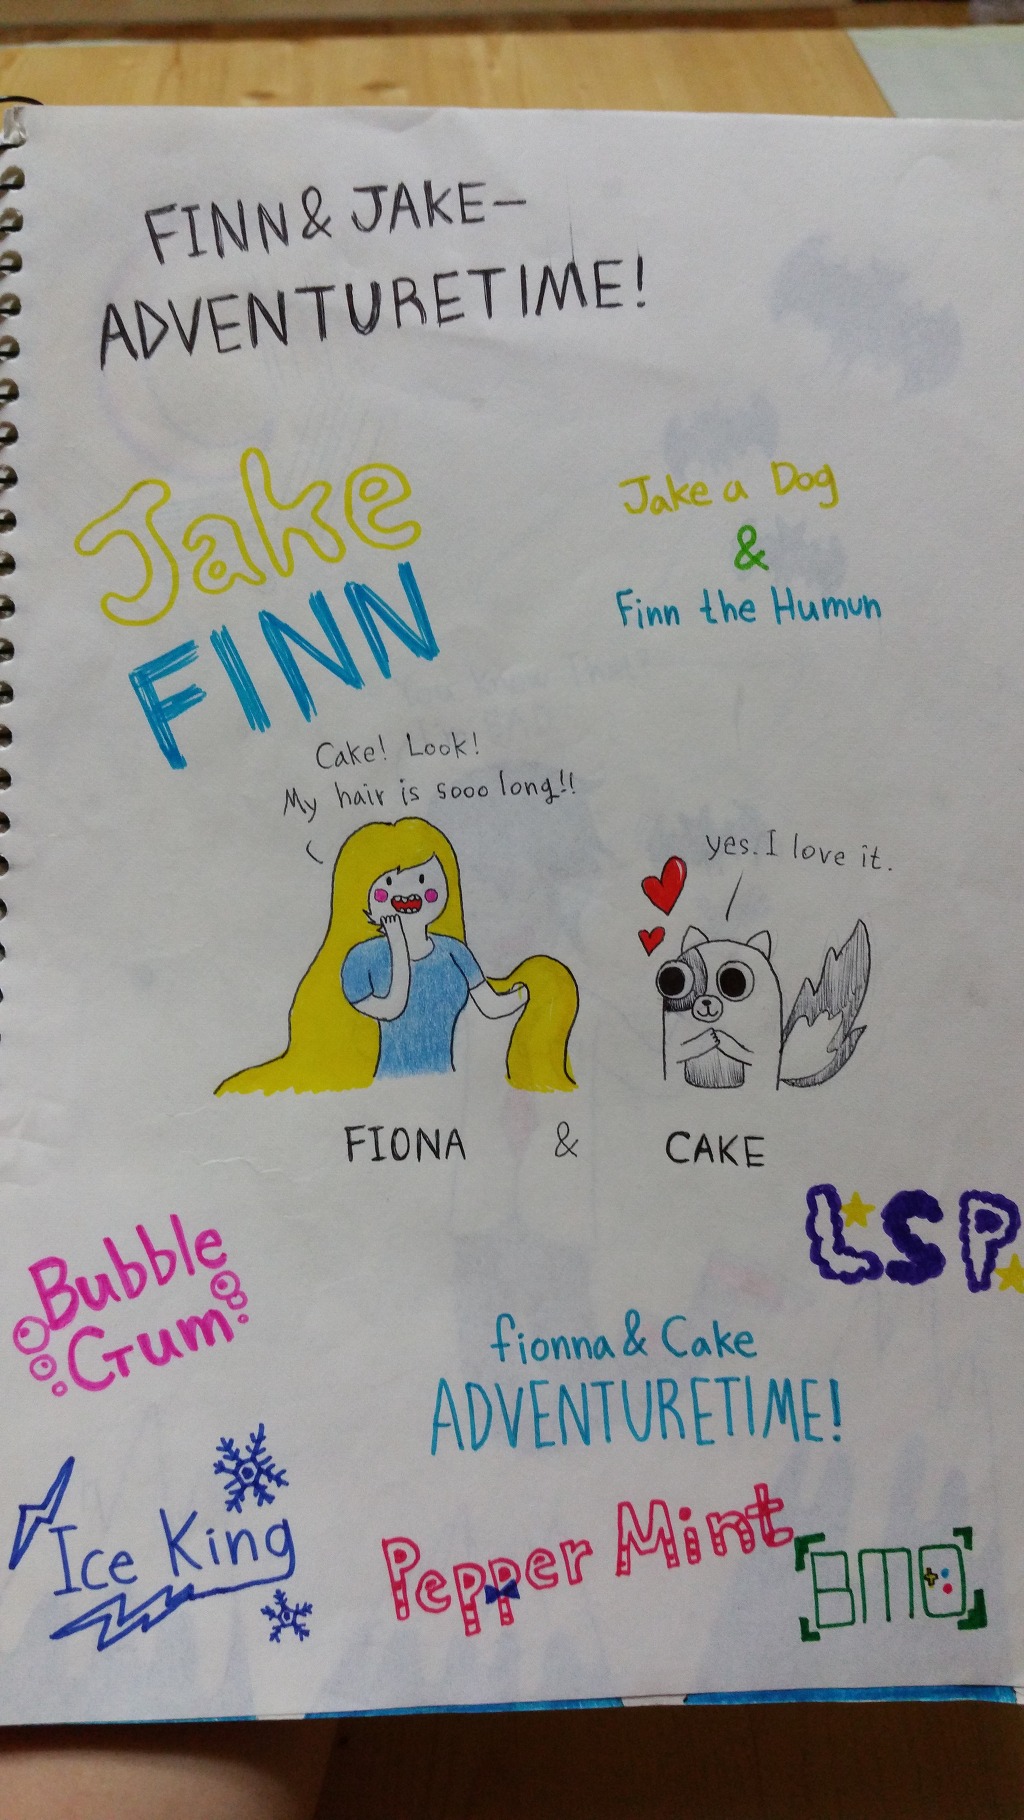 FINN & JAKE-
ADVENTURETIME!
Jake
FINN
Jake a Dog
&
Finn the Humun
Cake! Look!
My hair is sooo long!!
yes. I love it.
FIONA & CAKE
LSP
Bubble
Gum
fionna & Cake
ADVENTURETIME!
Ice King
Pepper Mint
BMO